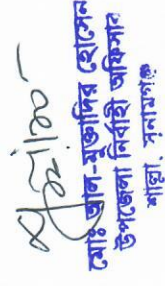 মোঃ আল-মুক্তাদির হোসেন
উপজেলা নির্বাহী অফিসার
শাল্লা, সুনামগঞ্জ